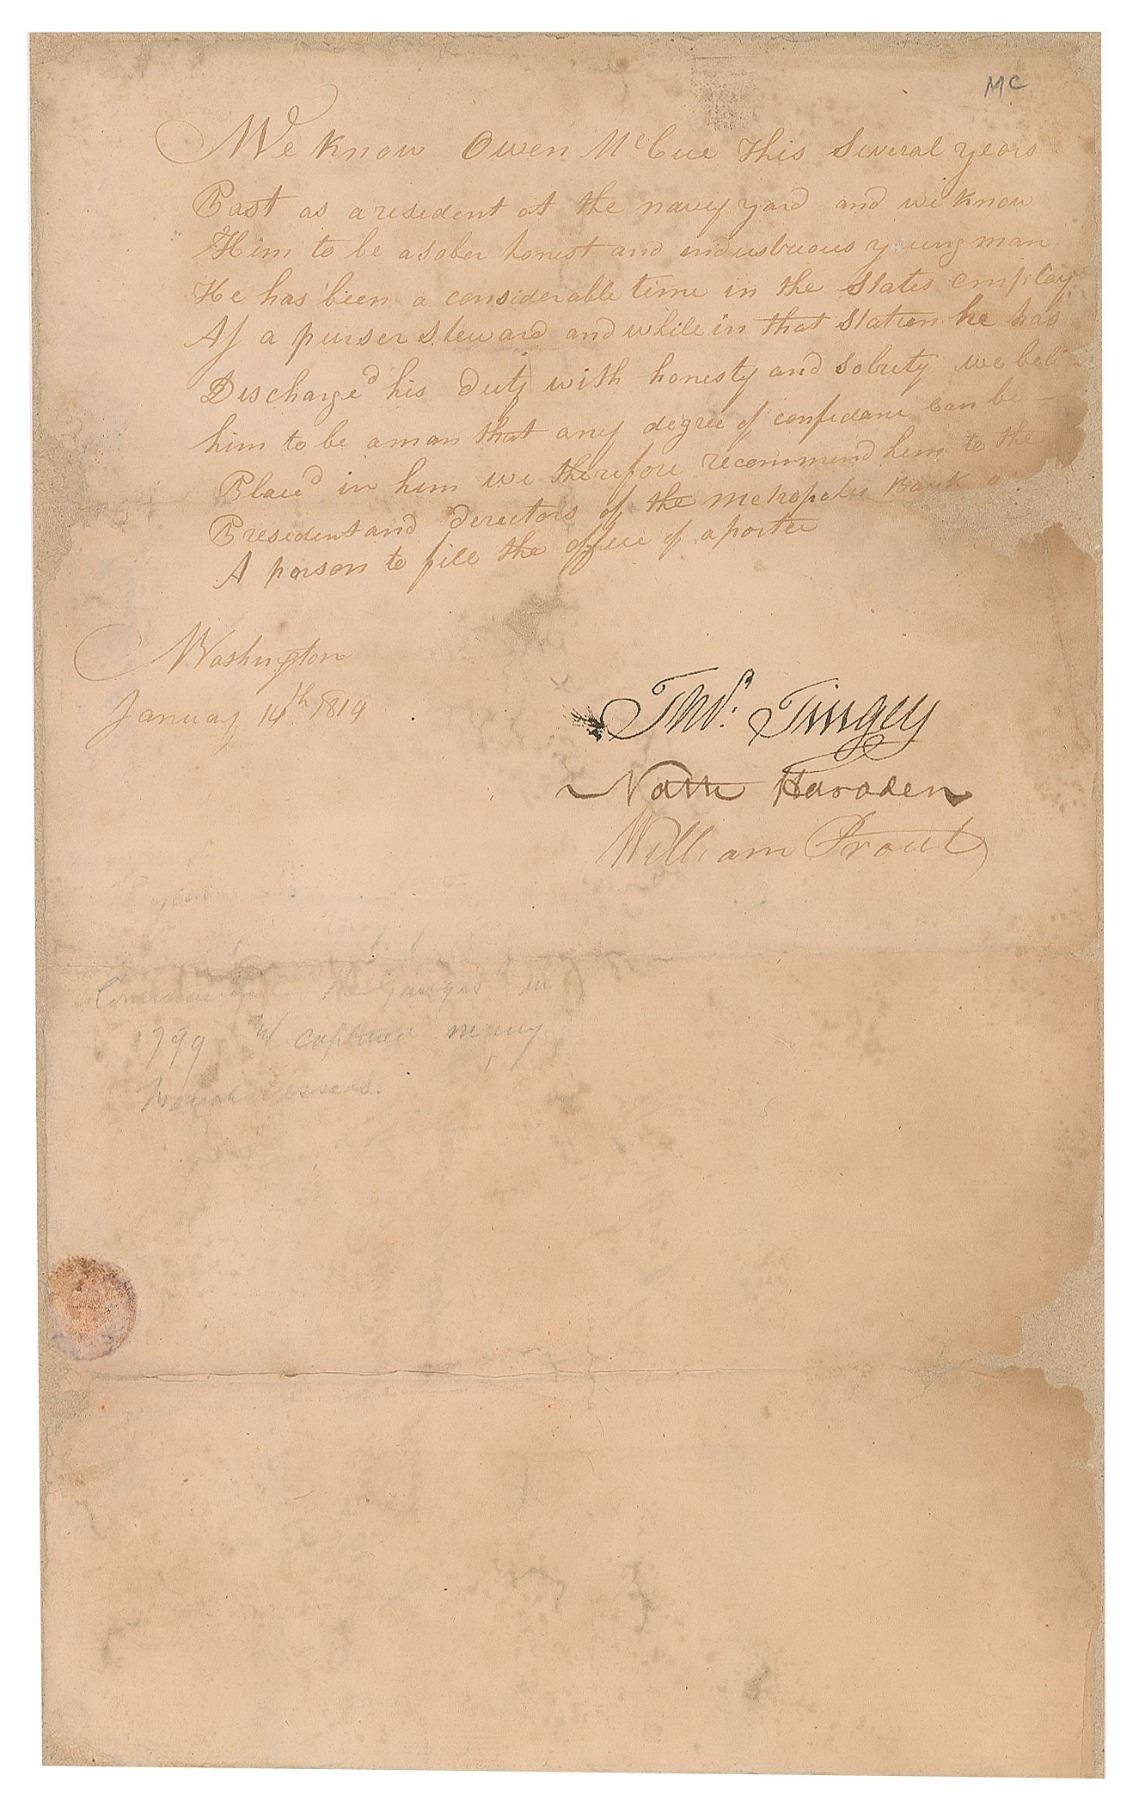 Mc
We Know Owen McCue This Several years
Past as a resident at the navy yard and we know
Him to be a sober honest and industruous young man
He has been a considerable time in the States employ
As a purser steward and while in that station he has
Discharged his duty with honesty and sobrety we beli
him to be a man that any degree of confidance can be
Placed in him we therefore recommend him to the
President and directors of the metropolis Bank
A parson to fill the office of a porter
Washington
January 14th 1819
Thos. Tingey
Nath Haraden
William Prout
Commanding the Ganges in
1799 & captured many
French vessels.